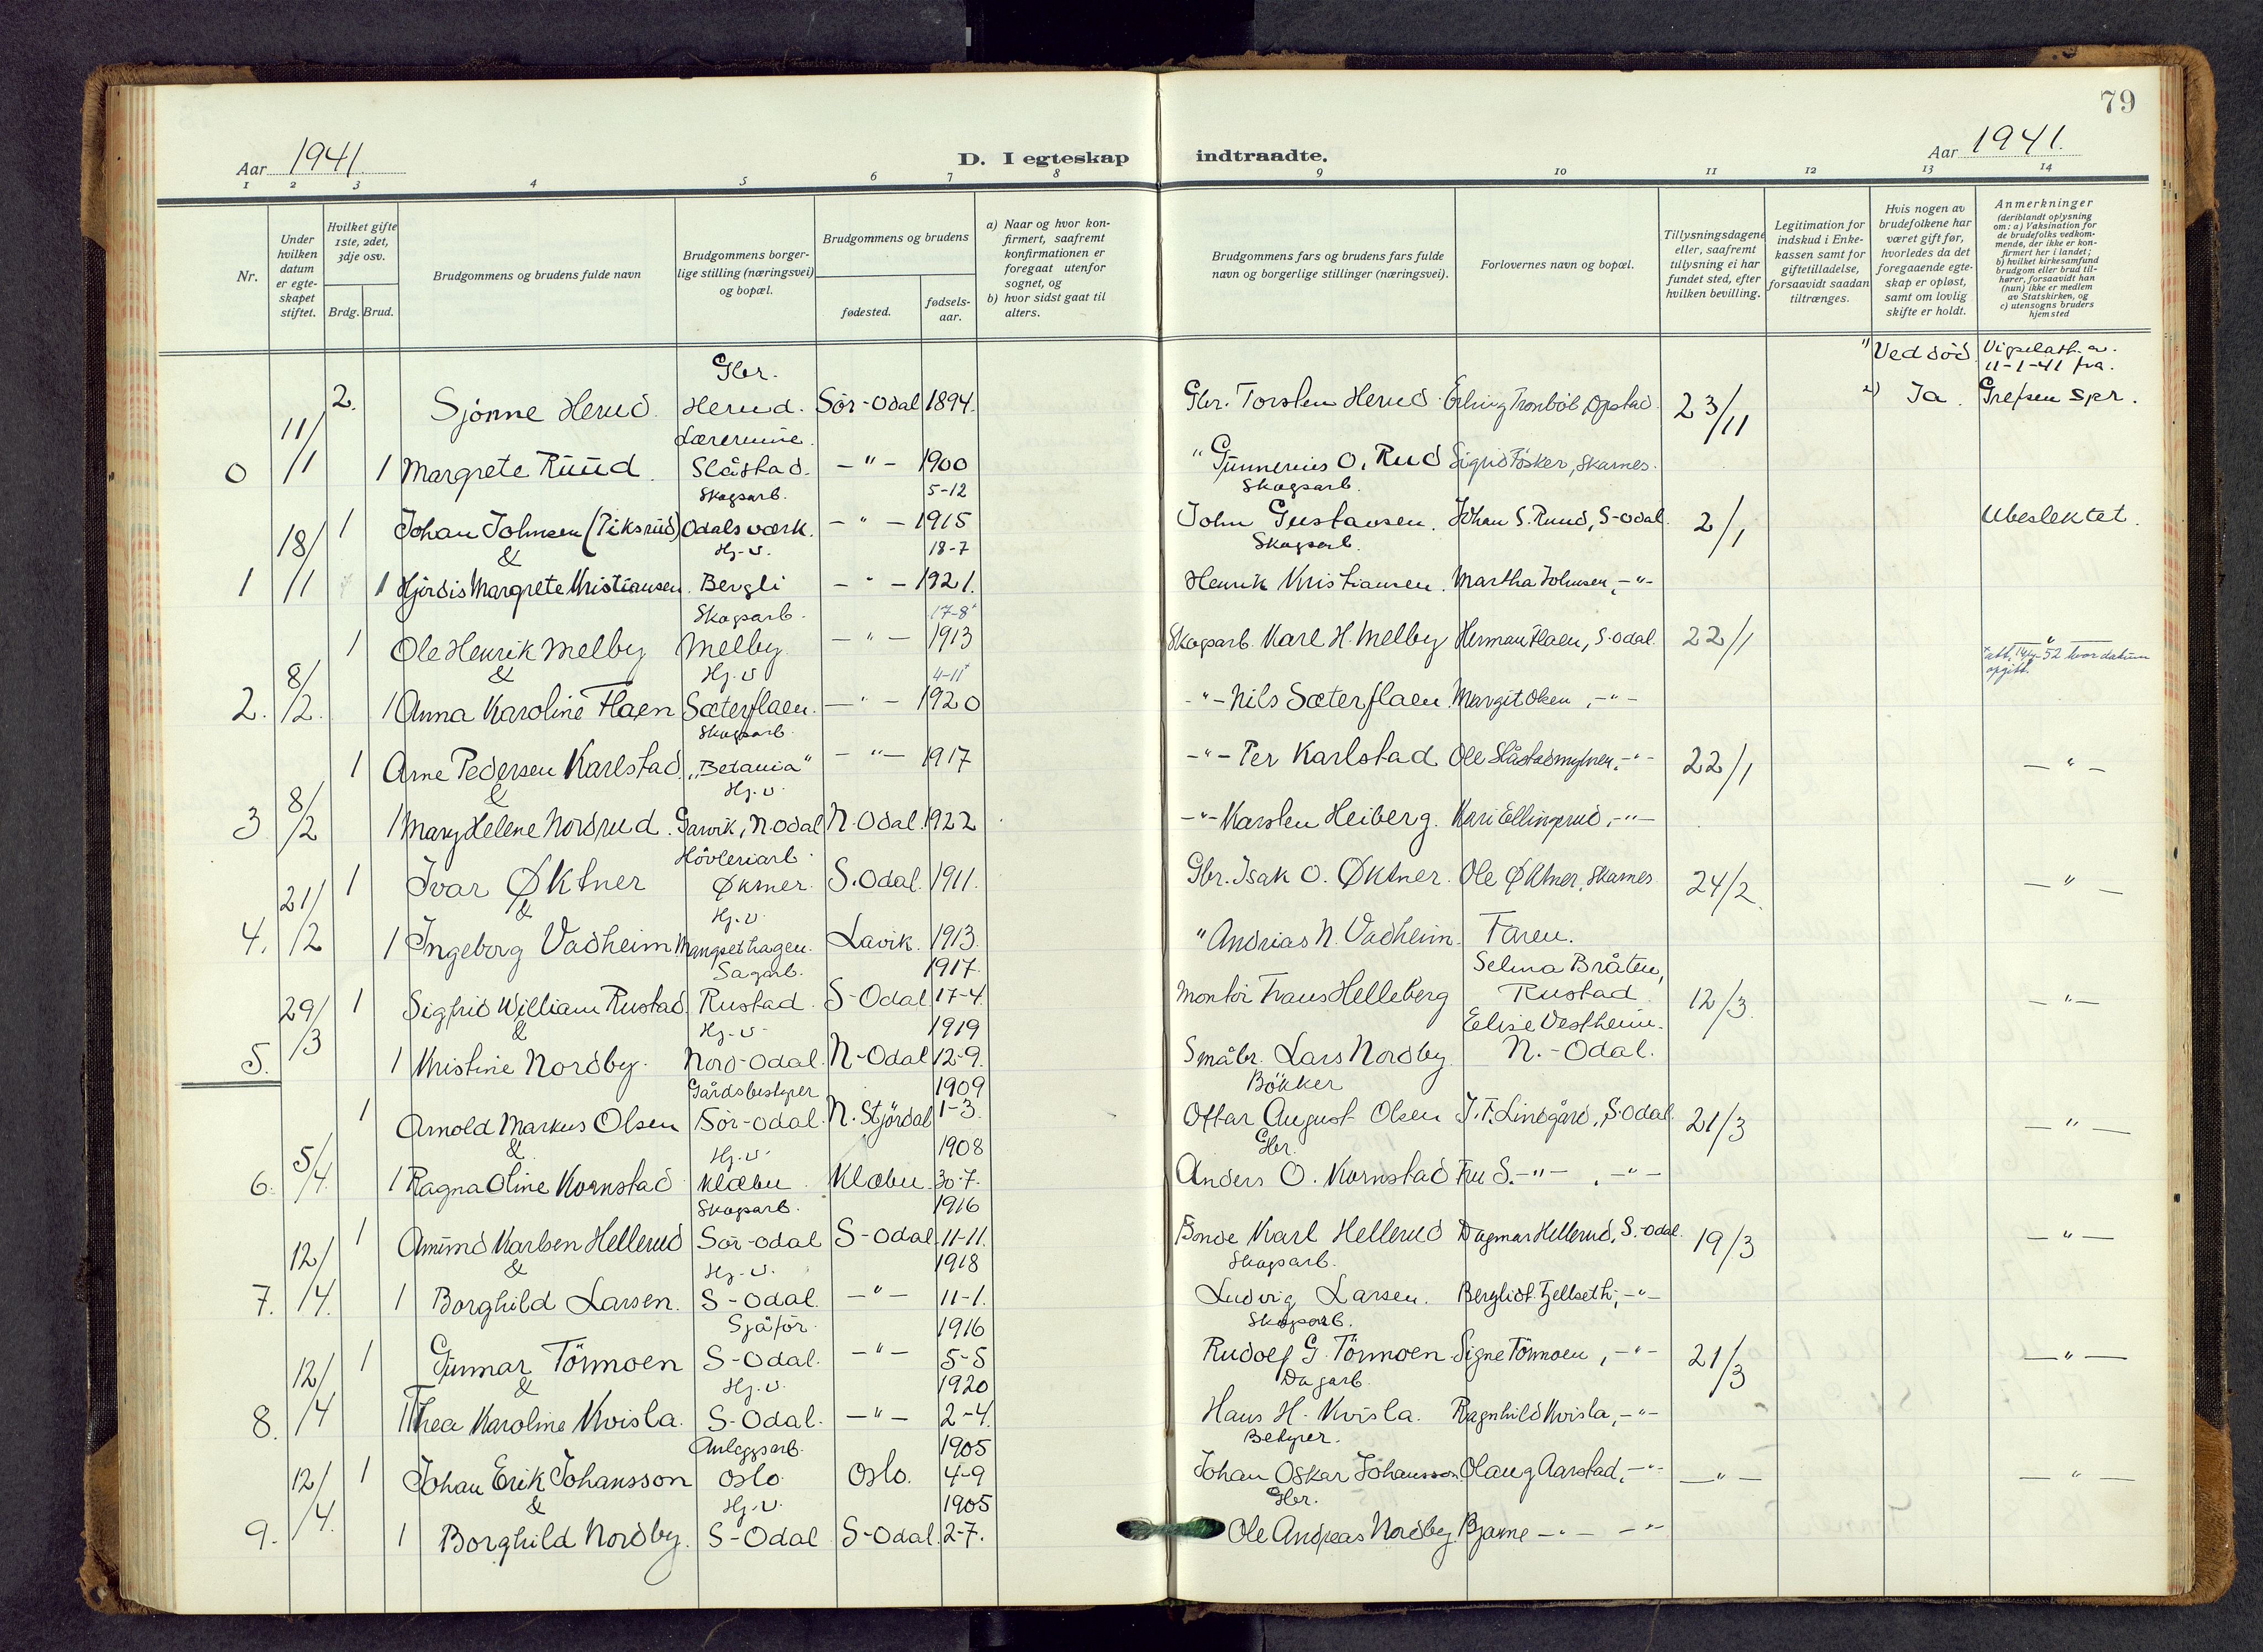 79
Aar 1941
D. I egteskap indtraadte.
Aar 1941.
1 2 3 4 5 6 7 8 9 10 11 12 13 14
Nr.
Under hvilken datum er egteskapet stiftet.
Hvilket gifte 1ste, 2det, 3dje osv.
Brdg. Brud.
Brudgommens og brudens fulde navn
Brudgommens borgerlige stilling (næringsvei) og bopæl.
Brudgommens og brudens
fødested.
fødselsaar.
a) Naar og hvor konfirmert, saafremt konfirmationen er foregaat utenfor sognet, og
b) hvor sidst gaat til alters.
Brudgommens fars og brudens fars fulde navn og borgerlige stillinger (næringsvei).
Forlovernes navn og bopæl.
Tillysningsdagene eller, saafremt tillysning ei har fundet sted, efter hvilken bevilling.
Legitimation for indskud i Enkekassen samt for giftetilladelse, forsaavidt saadan tiltrænges.
Hvis nogen av brudefolkene har været gift før, hvorledes da det foregaaende egteskap er opløst, samt om lovlig skifte er holdt.
Anmerkninger (deriblandt oplysning om: a) Vaksination for de brudefolks vedkommende, der ikke er konfirmert her i landet; b) hvilket kirkesamfund brudgom eller brud tilhører, forsaavidt han (hun) ikke er medlem av Statskirken, og c) utensogns bruders hjemsted
Gbr. 1) Ved död. Vigselatt. a. 11-1-41 fra
2. Sjönne Herud. Herud. Sör-Odal 1894. Gbr. Torsten Herud. Erling Tronböl, Opstad. 23/11 2) Ja. Grefsen spr.
11/1 Lærerinne.
0 1 Margrete Ruud. Slåstad. -"- 1900 " Gunnerius O. Rud Sigrid Fosker, Skarnes.
Skogsarb. 5-12 Skogsarb.
18/1 1 Johan Johnsen (Piksrud) Odalsværk. -"- 1915 John Gustavsen. Johan S. Ruud, S-Odal. 2/1 Ubeslektet.
& Hj.v. 18-7 Skogsarb.
1 1 Hjördis Margrete Kristiansen. Bergli -"- 1921. Henrik Kristiansen. Martha Johnsen, -"-
Skogsarb. 17-8
1 Ole Henrik Melby Melby. -"- 1913 Skogsarb. Karl H. Melby Herman Flaen, S.Odal. 22/1 -"-
8/2 & Hj.v 4-11
2. 1 Anna Karoline Flaen Sæterflaen. -"- 1920 -"- Nils Sæterflaen. Margit Olsen, -"-
Skogsarb.
1 Arne Pedersen Karlstad "Betania" -"- 1917 -"- Per Karlstad Ole Slåstadmyhren, -"- 22/1 -"-
8/2 & Hj.v.
3 1 Mary Helene Nordrud. Garvik, N.Odal N.Odal. 1922 -"- Karsten Heiberg. Kari Ellingsrud, -"-
Hövleriarb.
21/2 1 Ivar Øktner Øktner. S.Odal. 1911. Gbr. Isak O. Øktner. Ole Øktner, Skarnes 24/2. -"-
& Hj.v.
4. 1 Ingeborg Vadheim Mangsethagen. Lavik. 1913. " Andrias N. Vadheim. Faren.
Sagarb. 1917. Selma Bråten,
29/3 1 Sigfrid William Rustad. Rustad. S-Odal 17-4. Montör Frans Helleberg Rustad. 12/3. -"-
& Hj-v- 1919 Elise Vestheim.
5. 1 Kristine Nordby. Nord-Odal. N-Odal 12-9. Småbr. Lars Nordby N.-Odal.
Gårdsbestyrer 1909 Bökker
1 Arnold Markus Olsen Sör-Odal. N. Stjördal 1-3. Ottar August Olsen J.F. Lindgård, S.Odal. 21/3 -"-
5/4 & Hj.v. 1908 Gbr.
6. 1 Ragna Oline Kornstad Klæbu. Klæbu. 30-7. Anders O. Kornstad Fru S. -"-, -"-
Skogsarb. 1916
12/4 1 Amund Karlsen Hellerud Sör-Odal S-Odal 11-11. Bonde Karl Hellerud Dagmar Hellerud, S.-Odal. 19/3 -"-
& Hj.-v. 1918 Skogsarb.
7. 1 Borghild Larsen. S-Odal. -"- 11-1. Ludvig Larsen. Bergliot Fjellseth, -"-
Sjåför. 1916 Skogsarb.
12/4 1 Gunnar Törmoen S-Odal. -"- 5-5 Rudolf G. Törmoen. Signe Törmoen, -"- 21/3 -"-
& Hj.v. 1920 Dagarb.
8. 1 Thea Karoline Kvisla. S-Odal. -"- 2-4. Hans H. Kvisla. Ragnhild Kvisla, -"-
Anleggsarb. 1905 Bestyrer.
12/4 1 Johan Erik Johansson Oslo Oslo. 4-9 Johan Oskar Johansson. Olaug Aarstad, -"- -"- -"-
& Hj.v. 1905 Gbr.
9. 1 Borghild Nordby. S-Odal S-Odal. 2-7. Ole Andreas Nordby. Bjarne -"- -"-